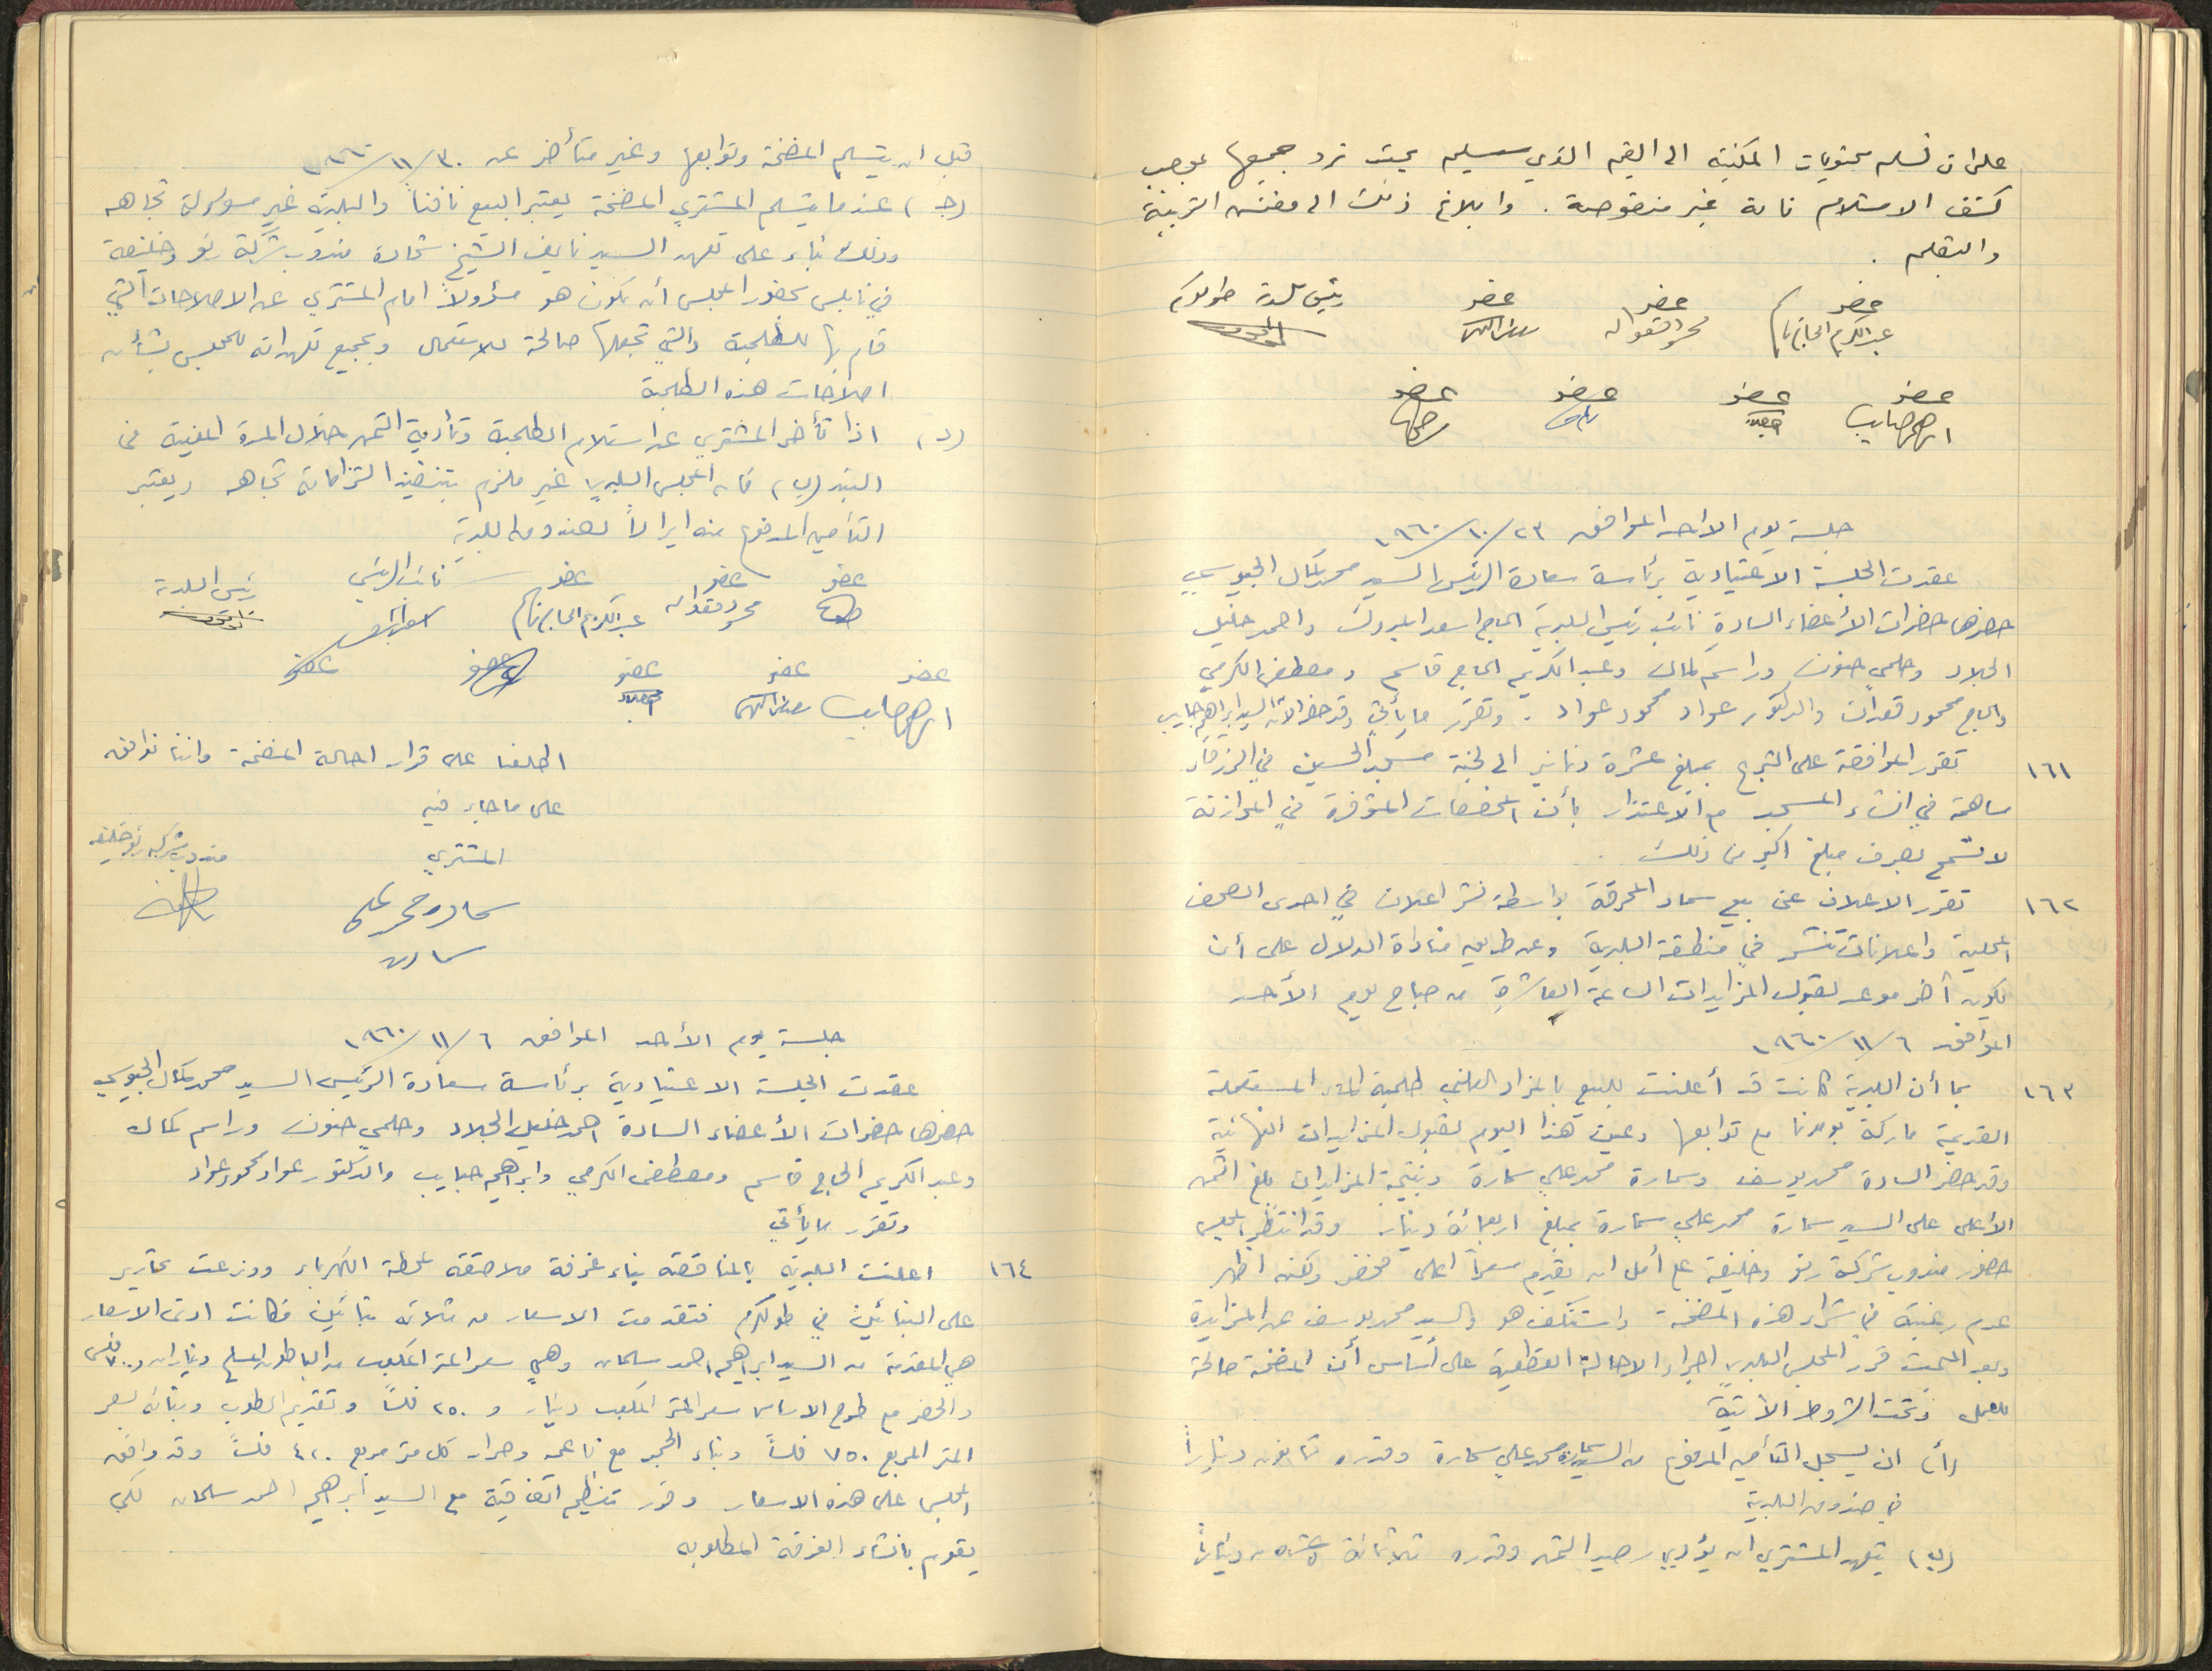 على ان تسلم محتويات المكتبة الى القيم الذي سيليه بحيث ترد جميعها بموجب
كشف الاستلام تامة غير منقوصة. وابلاغ ذلك الى مفتش التربية
والتعليم.
عضو عضو عضو رئيس بلدية طولكرم
عبد الكريم الحاج قاسم محمود قعدان
عضو عضو عضو عضو
ابراهيم حبايب
جلسة يوم الاحد الموافق ٢٣/١٠/١٩٦٠
عقدت الجلسة الاعتيادية برئاسة سعادة الرئيس السيد محمد كمال الجيوسي
حضرها حضرات الأعضاء السادة نائب رئيس البلدية الحاج اسعد المبروك واحمد خليل
الجلاد وحلمي حنون وراسم كمال وعبد الكريم الحاج قاسم ومصطفى الكرمي
والحاج محمود قعدان والدكتور عواد محمود عواد. وتقرر ما يأتي وقد حضر الان السيد ابراهيم حبايب
١٦١ تقرر الموافقة على التبرع بمبلغ عشرة دنانير الى لجنة مسجد الحسين في الزرقاء
مساهمة في انشاء المسجد مع الاعتذار بأن المخصصات المتوفرة في الموازنة
لا تسمح بصرف مبلغ اكبر من ذلك.
١٦٢ تقرر الاعلان عن بيع سماد المحرقة بواسطة نشر اعلان في احدى الصحف
المحلية واعلانات تنشر في منطقة البلدية وعن طريق مناداة الدلال على أن
يكون آخر موعد لقبول المزايدات الساعة العاشرة من صباح يوم الأحد
الموافق ٦/١١/١٩٦٠
١٦٣ بما أن البلدية كانت قد أعلنت للبيع بالمزاد العلني طلمبة الماء المستعملة
القديمة ماركة بومونا مع توابعها وعين هذا اليوم لقبول المزايدات النهائية
وقد حضر السادة محمد يوسف وسمارة محمد علي سمارة ونتيجة المزايدات بلغ الثمن
الأعلى على السيد سمارة محمد علي سمارة بمبلغ اربعمائة دينار وقد انتظر المجلس
حضور مندوب شركة رنو وخليفة على أمل ان يقدم سعراً اعلى فحضر ولكنه اظهر
عدم رغبته في شراء هذه المضخة واستنكف هو والسيد محمد يوسف عن المزايدة
وبعد البحث قرر المجلس البلدي اجراء الاحالة القطعية على أساس أن المضخة صالحة
للعمل وتحت الشروط الآتية
(أ) ان يسجل التأمين المدفوع من السيد سمارة محمد علي سمارة وقدره ثمانون ديناراً
في صندوق البلدية
(ب) يتعهد المشتري ان يؤدي رصيد الثمن وقدره ثلاثمائة وعشرون ديناراً
قبل ان يتسلم المضخة وتوابعها وغير متأخر عن ٣٠/١١/١٩٦٠
(ج) عندما يتسلم المشتري المضخة يعتبر البيع نافذاً والبلدية غير مسؤولة تجاهه
وذلك بناء على تعهد السيد نايف الشيخ شحادة مندوب شركة رنو وخليفة
في نابلس بحضور المجلس أن يكون هو مسؤولاً امام المشتري عن الاصلاحات التي
قام بها للطلمبة والتي تجعلها صالحة للاستعمال وبجميع تعهداته للمجلس بشأن
اصلاحات هذه الطلمبة
(د) اذا تأخر المشتري عن استلام الطلمبة وتأدية الثمن خلال المدة المعينة في
البند (ب) فان المجلس البلدي غير ملزم بتنفيذ التزاماته تجاهه ويعتبر
التأمين المدفوع منه ايراداً لصندوق البلدية
عضو عضو عضو نائب الرئيس رئيس البلدية
محمود قعدان عبد الكريم الحاج قاسم
عضو عضو عضو عضو عضو
ابراهيم حبايب
اطلعنا على قرار احالة المضخة واننا نوافق
على ما جاء فيه
المشتري مندوب شركة رنو وخليفة
سماره محمد علي
سماره
جلسة يوم الأحد الموافق ٦/١١/١٩٦٠
عقدت الجلسة الاعتيادية برئاسة سعادة الرئيس السيد محمد كمال الجيوسي
حضرها حضرات الأعضاء السادة احمد خليل الجلاد وحلمي حنون وراسم كمال
وعبد الكريم الحاج قاسم ومصطفى الكرمي وابراهيم حبايب والدكتور عواد محمود عواد
وتقرر ما يأتي
١٦٤ اعلنت البلدية بالمناقصة بناء غرفة ملاصقة لمحطة الكهرباء ووزعت تحارير
على البنائين في طولكرم فتقدمت الاسعار من ثلاثة بنائين فكانت ادنى الاسعار
هي المقدمة من السيد ابراهيم احمد سلمان وهي سعر المتر المكعب من الباطون المسلح ديناران و٧٠٠ فلس
والحفر مع طرح الاساس سعر المتر المكعب دينار و ٢٥٠ فلساً وتقديم الطوب وبنائه بسعر
المتر المربع ٧٥٠ فلساً وبناء الحجر مع ناعمه وحرار كل متر مربع ٤٢٠ فلساً وقد وافق
المجلس على هذه الاسعار وقرر تنظيم اتفاقية مع السيد ابراهيم احمد سلمان لكي
يقوم بانشاء الغرفة المطلوبه